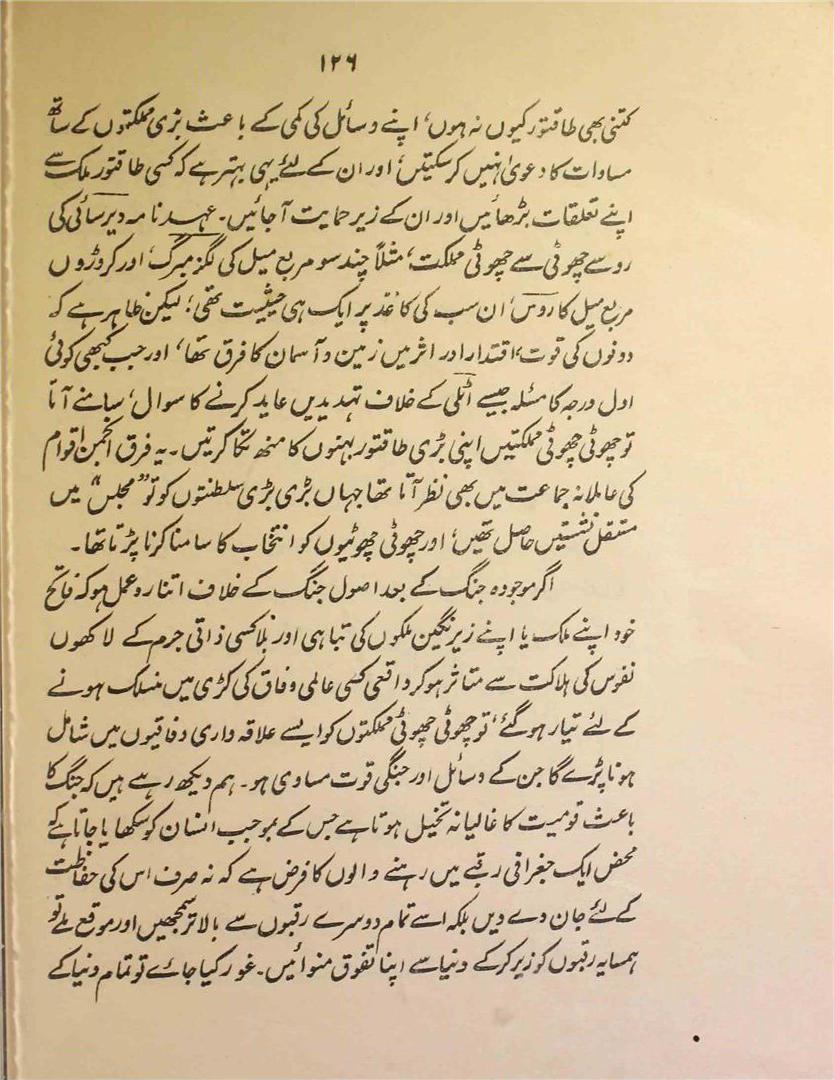 ۱۲۶
کتنی بھی طاقتور کیوں نہ ہوں، اپنے وسائل کی کمی کے باعث بڑی مملکتوں کے ساتھ
مساوات کا دعویٰ نہیں کرسکتیں، اور ان کے لئے یہی بہتر ہے کہ کسی طاقتور ملک سے
اپنے تعلقات بڑھائیں اور ان کے زیر حمایت آجائیں۔ عہد نامہ دیرسائی کی
رو سے چھوٹی سے چھوٹی مملکت، مثلاً چند سو مربع میل کی لگزمبرگ، اور کروڑوں
مربع میل کا روس، ان سب کی کاغذ پر ایک ہی حیثیت تھی؛ لیکن ظاہر ہے کہ
دونوں کی قوت، اقتدار اور اثر میں زمین و آسمان کا فرق تھا، اور جب کبھی کوئی
اول درجہ کا مسئلہ جیسے اٹلی کے خلاف تہدیدیں عاید کرنے کا سوال، سامنے آتا
تو چھوٹی چھوٹی مملکتیں اپنی بڑی طاقتور بہنوں کا منھ تکا کرتیں۔ یہ فرق انجمن اقوام
کی عاملانہ جماعت میں بھی نظر آتا تھا جہاں بڑی بڑی سلطنتوں کو تو "مجلس" میں
مستقل نشستیں حاصل تھیں، اور چھوٹی چھوٹیوں کو انتخاب کا سامنا کرنا پڑتا تھا۔
اگر موجودہ جنگ کے بعد اصول جنگ کے خلاف اتنا ردعمل ہو کہ فاتح
خود اپنے ملک یا اپنے زیر نگین ملکوں کی تباہی اور بلا کسی ذاتی جرم کے لاکھوں
نفوس کی ہلاکت سے متاثر ہو کر واقعی کسی عالمی وفاق کی کڑی میں منسلک ہونے
کے لئے تیار ہو گئے، تو چھوٹی چھوٹی مملکتوں کو ایسے علاقہ واری وفاقیوں میں شامل
ہونا پڑے گا جن کے وسائل اور جنگی قوت مساوی ہو۔ ہم دیکھ رہے ہیں کہ جنگ کا
باعث قومیت کا غالیانہ تخیل ہوتا ہے جس کے بموجب انسان کو سکھایا جاتا ہے کہ
محض ایک جغرافی رقبے میں رہنے والوں کا فرض ہے کہ نہ صرف اس کی حفاظت
کے لئے جان دے دیں بلکہ اسے تمام دوسرے رقبوں سے بالاتر سمجھیں اور موقع ملے تو
ہمسایہ رقبوں کو زیر کر کے دنیا سے اپنا تفوق منوائیں۔ غور کیا جائے تو تمام دنیا کے